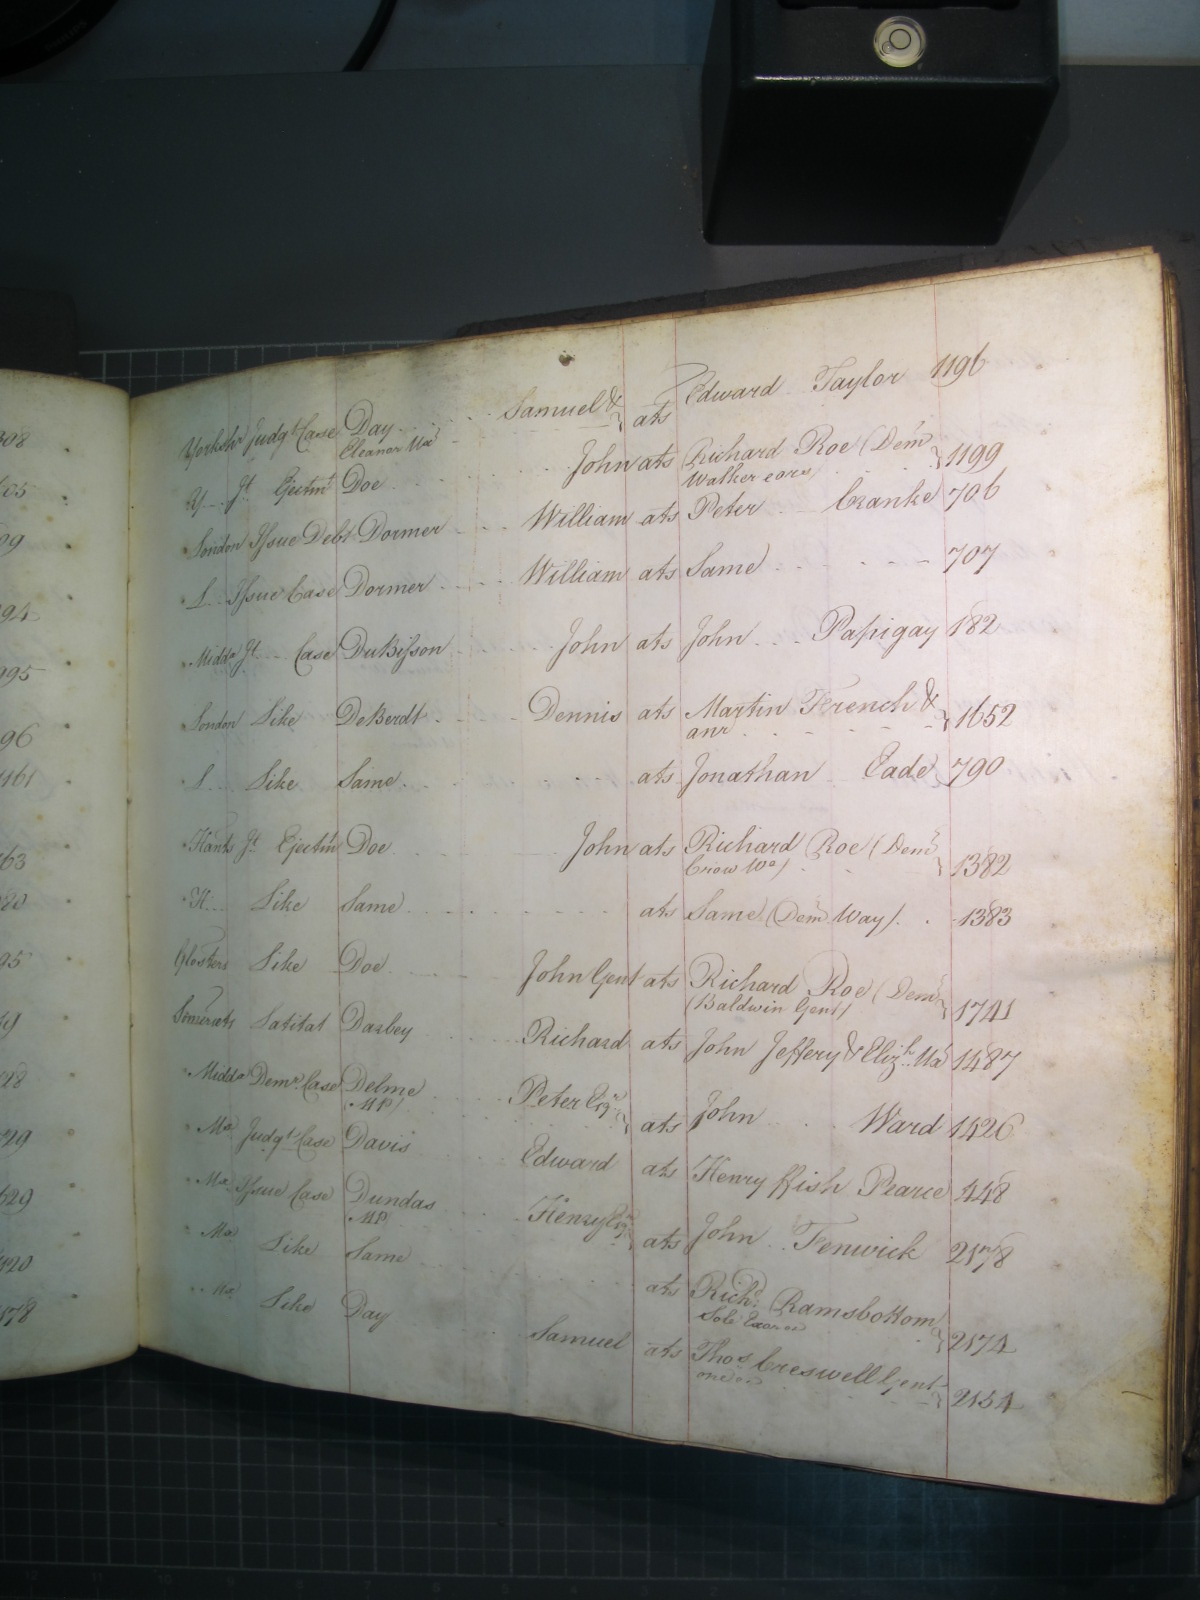 Yorkshr Judgt Case Day Samuel & ats Edward Taylor 1196
Eleanor Ux
Y Jt Ejectmt Doe John ats Richard Roe (Dem 1199
Walker &ors)
London Issue Debt Dormer William ats Peter Cranke 706
L Issue Case Dormer William ats Same 707
Middx Jt Case DuBisson John ats John Papigay 182
London Like DeBerdt Dennis ats Martin French & 1652
anr
L Like Same ats Jonathan Eade 790
Hants Jt Ejectmt Doe John ats Richard Roe (Dem 1382
Crow Wo)
H Like Same ats Same (Dem Way) 1383
Glosters Like Doe John Gent ats Richard Roe (Dem 1741
Baldwin Gent)
Somersets Latitat Darbey Richard ats John Jeffery & Elizh Ux 1487
Middx Demr Case Delme Peter Esqr ats John Ward 1426
MP)
Mx Judgt Case Davis Edward ats Henry ffish Pearce 448
Mx Issue Case Dundas Henry Esqr ats John Fenwick 2178
MP)
Mx Like Same ats Richd Ramsbottom 2174
Sole
Mx Like Day Samuel ats Thos Creswell Gent 2154
one &c
308
105
09
94
995
96
1161
163
95
29
529
420
178